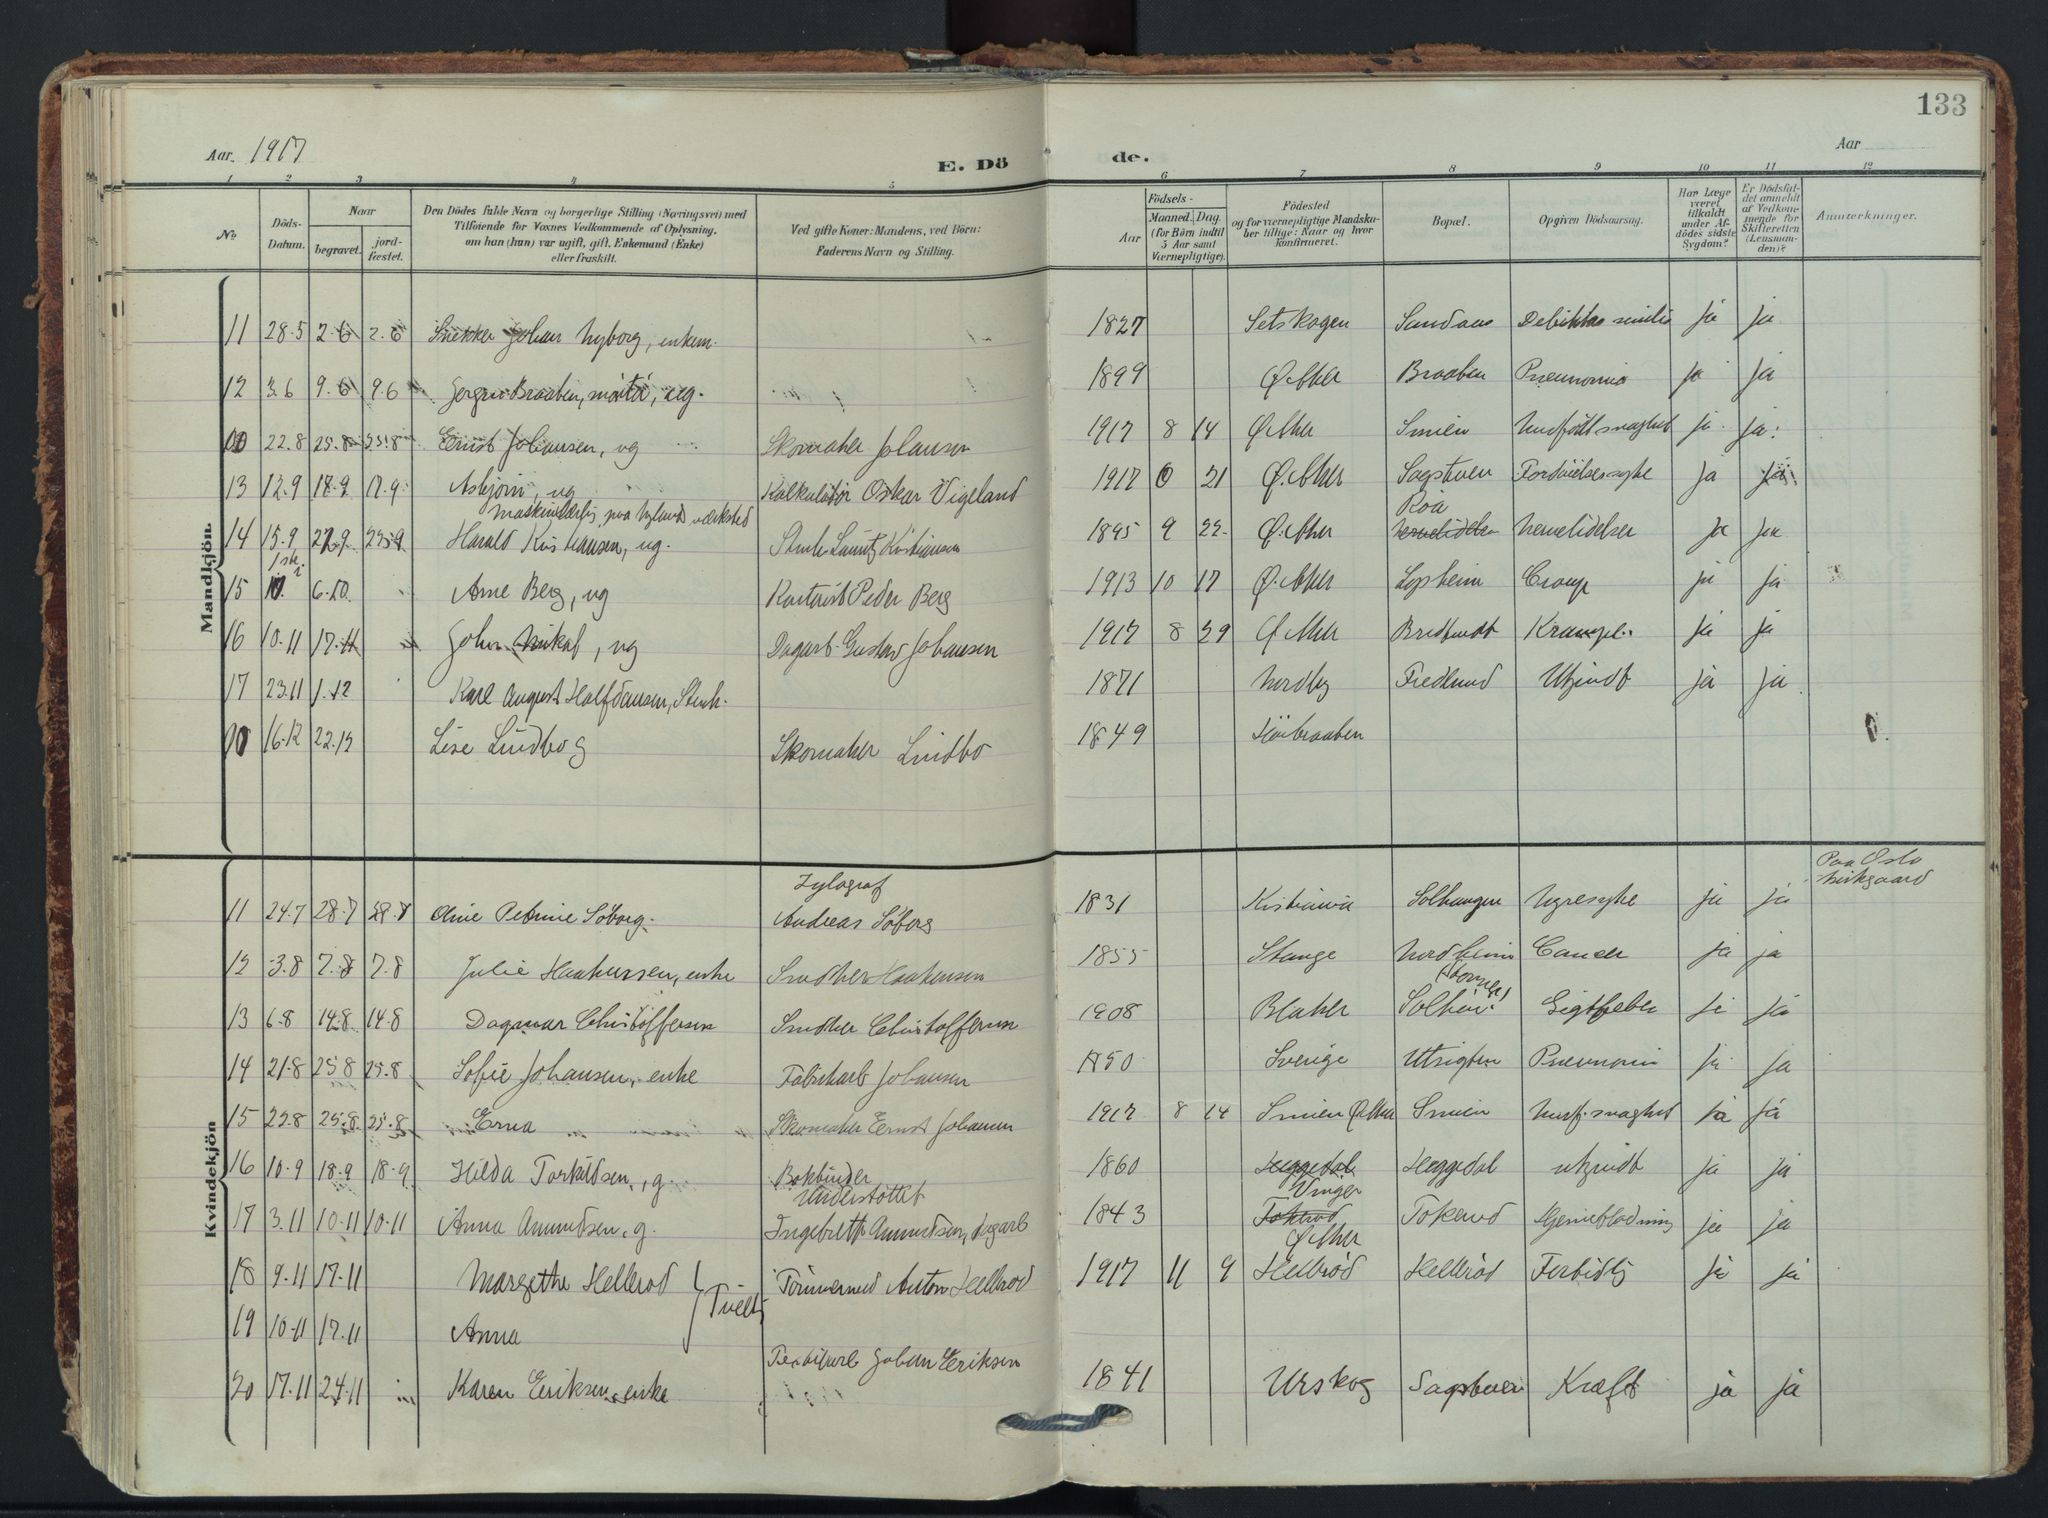 133
Aar. 1917
E. Dö de.
Aar
1 2 3 4 5 6 7 8 9 10 11 12
No
Döds-Datum.
Naar
begravet. jord-fæstet.
Den Dödes fulde Navn og borgerlige Stilling (Næringsvei) med
Tilföiende for Voxnes Vedkommende af Oplysning,
om han (hun) var ugift, gift, Enkemand (Enke)
eller fraskilt.
Ved gifte Koner: Mandens, ved Börn:
Faderens Navn og Stilling.
Födsels-
Aar
Maaned. Dag.
(for Börn indtil
5 Aar samt
Værnepligtige).
Födested
og for værnepligtige Mandska-
ber tillige: Naar og hvor
konfirmeret.
Bopæl.
Opgiven Dödsaarsag.
Har Læge
været
tilkaldt
under Af-
dödes sidste
Sygdom?
Er Dödsfal-
det anmeldt
af Vedkom-
mende for
Skifteretten
(Lensman-
den)?
Anmærkninger.
Mandkjön.
11 28.5 2.6 2.6 Snekker Johan Nyborg, enkem. 1827 Setskogen Sandaas ja ja
12 3.6 9.6 9.6 Braaten, ug. 1899 Ø. Aker Braaten Pneumonia ja ja
22.8 25.8 25.8 Ernst Johansen, ug Skomaker Johansen 1917 8 14 Ø. Aker Smien ja ja
13 12.9 18.9 17.9 Asbjörn, ug Kalkulatör Oskar Vigeland 1917 21 Ø. Aker ja ja
maskinlærling paa Nylands værksted Roa
14 15.9 23.9 Harald Kristiansen, ug. Kristiansen 1895 9 22 Ø. Aker Nervelidelser Nervelidelser ja ja
15 6.10 Arne Berg, ug Kontorist Peder Berg 1913 10 17 Ø. Aker Croup ja ja
16 10.11 17.11 John, ug Dagarb. Gustav Johansen 1917 8 29 Ø. Aker Bredtvedt ja ja
17 23.11 1.12 Karl August Halfdansen, 1871 Nordby Fredlund Ukjendt ja ja
16.12 22.12 Lise Lindbog Skomaker Lindbo 1849
Kvindekjön
Xylograf Paa Oslo kirkgaard
11 24.7 28.7 28.7 Oline Petrine Söborg. Andreas Söborg 1831 Kristiania Solhaugen Nyresyke ja ja
12 3.8 7.8 7.8 Julie Haakensen, enke Snedker Haakensen 1855 Stange Nordheim Cancer ja ja
13 6.8 14.8 14.8 Dagmar Christoffersen Snedker Christoffersen 1908 Blaker Gigtfeber ja ja
14 21.8 25.8 25.8 Sofie Johansen, enke Fabrikarb Johansen 1850 Sverige Utsigten Pneumoni ja ja
15 22.8 25.8 25.8 Erna Skomaker Ernst Johansen 1917 8 14 Smien Ø. Aker Smien ja ja
16 10.9 18.9 18.9 Hilda Torkildsen, g. Bokbinder 1860 Heggedal Heggedal ukjendt ja ja
Understöttet Vinger
17 3.11 10.11 10.11 Anna Amundsen, g. Ingebrett Amundsen, dagarb 1843 Tokerud Tokerud Hjerneblödning ja ja
Ø. Aker
18 9.11 17.11 Margethe Helleröd Tvill. Tömmermd Anton Helleröd 1917 11 9 Hellröd Hellröd ja ja
19 10.11 17.11 Anna
20 17.11 24.11 Karen Eriksen, enke Johan Eriksen 1841 Urskog Kræft ja ja